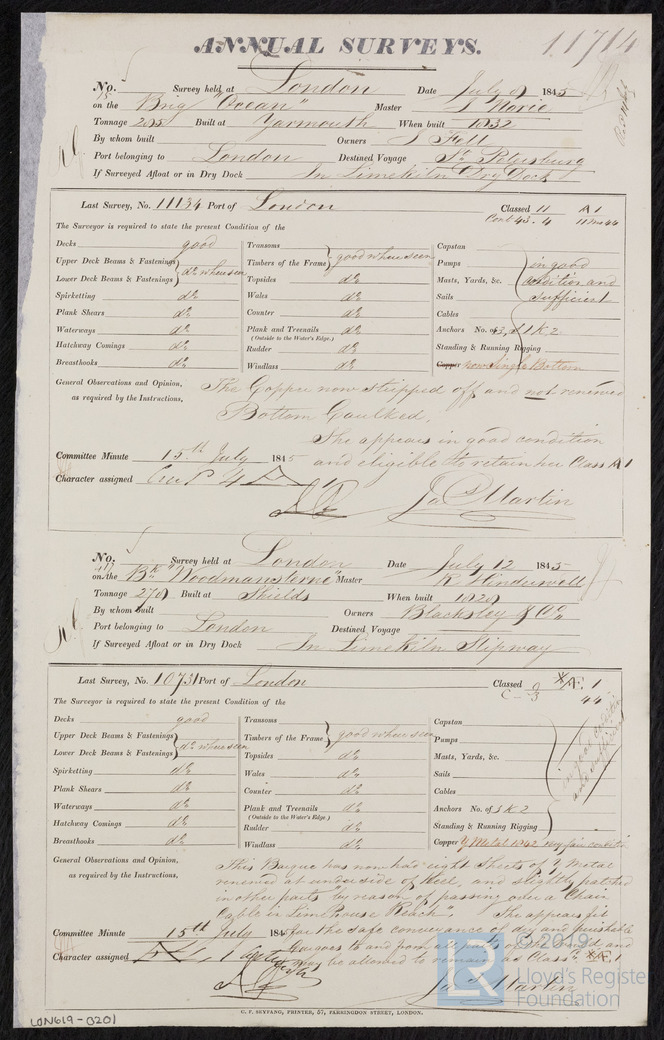 ANNUAL SURVEYS. 11714
No. Survey held at London Date July 9 1845
on the Brig "Ocean" Master
Tonnage Built at Yarmouth When built 1832
By whom built Owners
Port belonging to London Destined Voyage St. Petersburg
If Surveyed Afloat or in Dry Dock In Limekiln Dry Dock
Last Survey, No. 11134 Port of London Classed 11 A1
The Surveyor is required to state the present Condition of the
Decks good Transoms Capstan
Upper Deck Beams & Fastenings Timbers of the Frame good where seen Pumps in good
Lower Deck Beams & Fastenings do where seen Topsides do Masts, Yards, &c. condition and
Spirketting do Wales do Sails sufficient
Plank Shears do Counter do Cables
Waterways do Plank and Treenails do Anchors No. of 3, S 1 K 2
(Outside to the Water's Edge.)
Hatchway Comings do Rudder do Standing & Running Rigging
Breasthooks do Windlass do Copper now Single Bottom
General Observations and Opinion, The Copper now stripped off and not renewed
as required by the Instructions,
Bottom Caulked.
She appears in good condition
Committee Minute 15th July 1845 and eligible to retain her Class A1
Character assigned
Jas Martin
No. Survey held at London Date July 12 1845
on the Bk "Woodmansterne" Master
Tonnage 270 Built at Shields When built
By whom built Owners Blacksley & Co
Port belonging to London Destined Voyage
If Surveyed Afloat or in Dry Dock In Limekiln Slipway
Last Survey, No. 10731 Port of London Classed Æ 1
44
The Surveyor is required to state the present Condition of the
Decks good Transoms Capstan
Upper Deck Beams & Fastenings Timbers of the Frame good where seen Pumps
Lower Deck Beams & Fastenings do where seen Topsides do Masts, Yards, &c. in good condition
Spirketting do Wales do Sails and sufficient
Plank Shears do Counter do Cables
Waterways do Plank and Treenails do Anchors No. of 3 K 2
(Outside to the Water's Edge.)
Hatchway Comings do Rudder do Standing & Running Rigging
Breasthooks do Windlass do Copper Y Metal 1842 very fair condition
General Observations and Opinion, This Barque has now had eight Sheets of Y Metal
as required by the Instructions, renewed at underside of Keel, and slightly patched
in other parts "by reason of passing over a Chain
Cable in Limehouse Reach". She appears fit
Committee Minute 15th July 1845 for the safe conveyance of dry and perishable
Cargoes to and from all parts of the World, and
Character assigned may be allowed to remain as Classed Æ 1
Jas Martin
C. F. SEYFANG, PRINTER, 57, FARRINGDON STREET, LONDON.
LON619-0201
© 2019
Lloyd's Register
Foundation